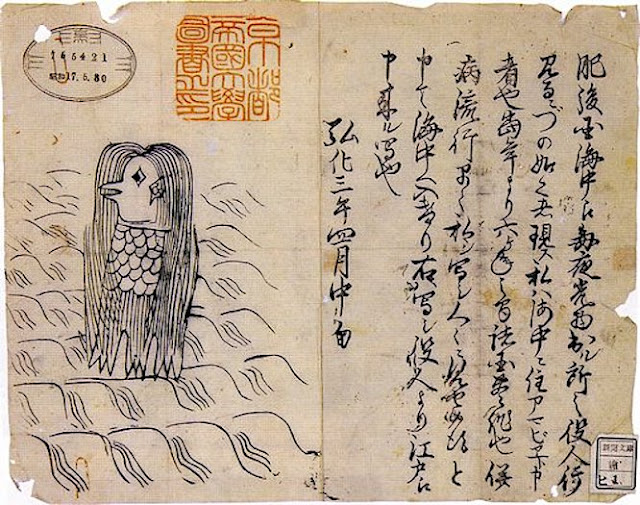 肥後国海中え毎夜光物出ル所之役人行
見るニづの如く之者現ス私ハ海中ニ住アマビヱト申
者也当年より六ヶ年之間諸国豊作也併
病流行早々私シ写シ人々ニ見セ候得と
申て海中へ入けり右写シ役人より江戸え
申来ル写也
弘化三年四月中旬
京都
帝國大學
圖書之印
765421
昭和17.5.30